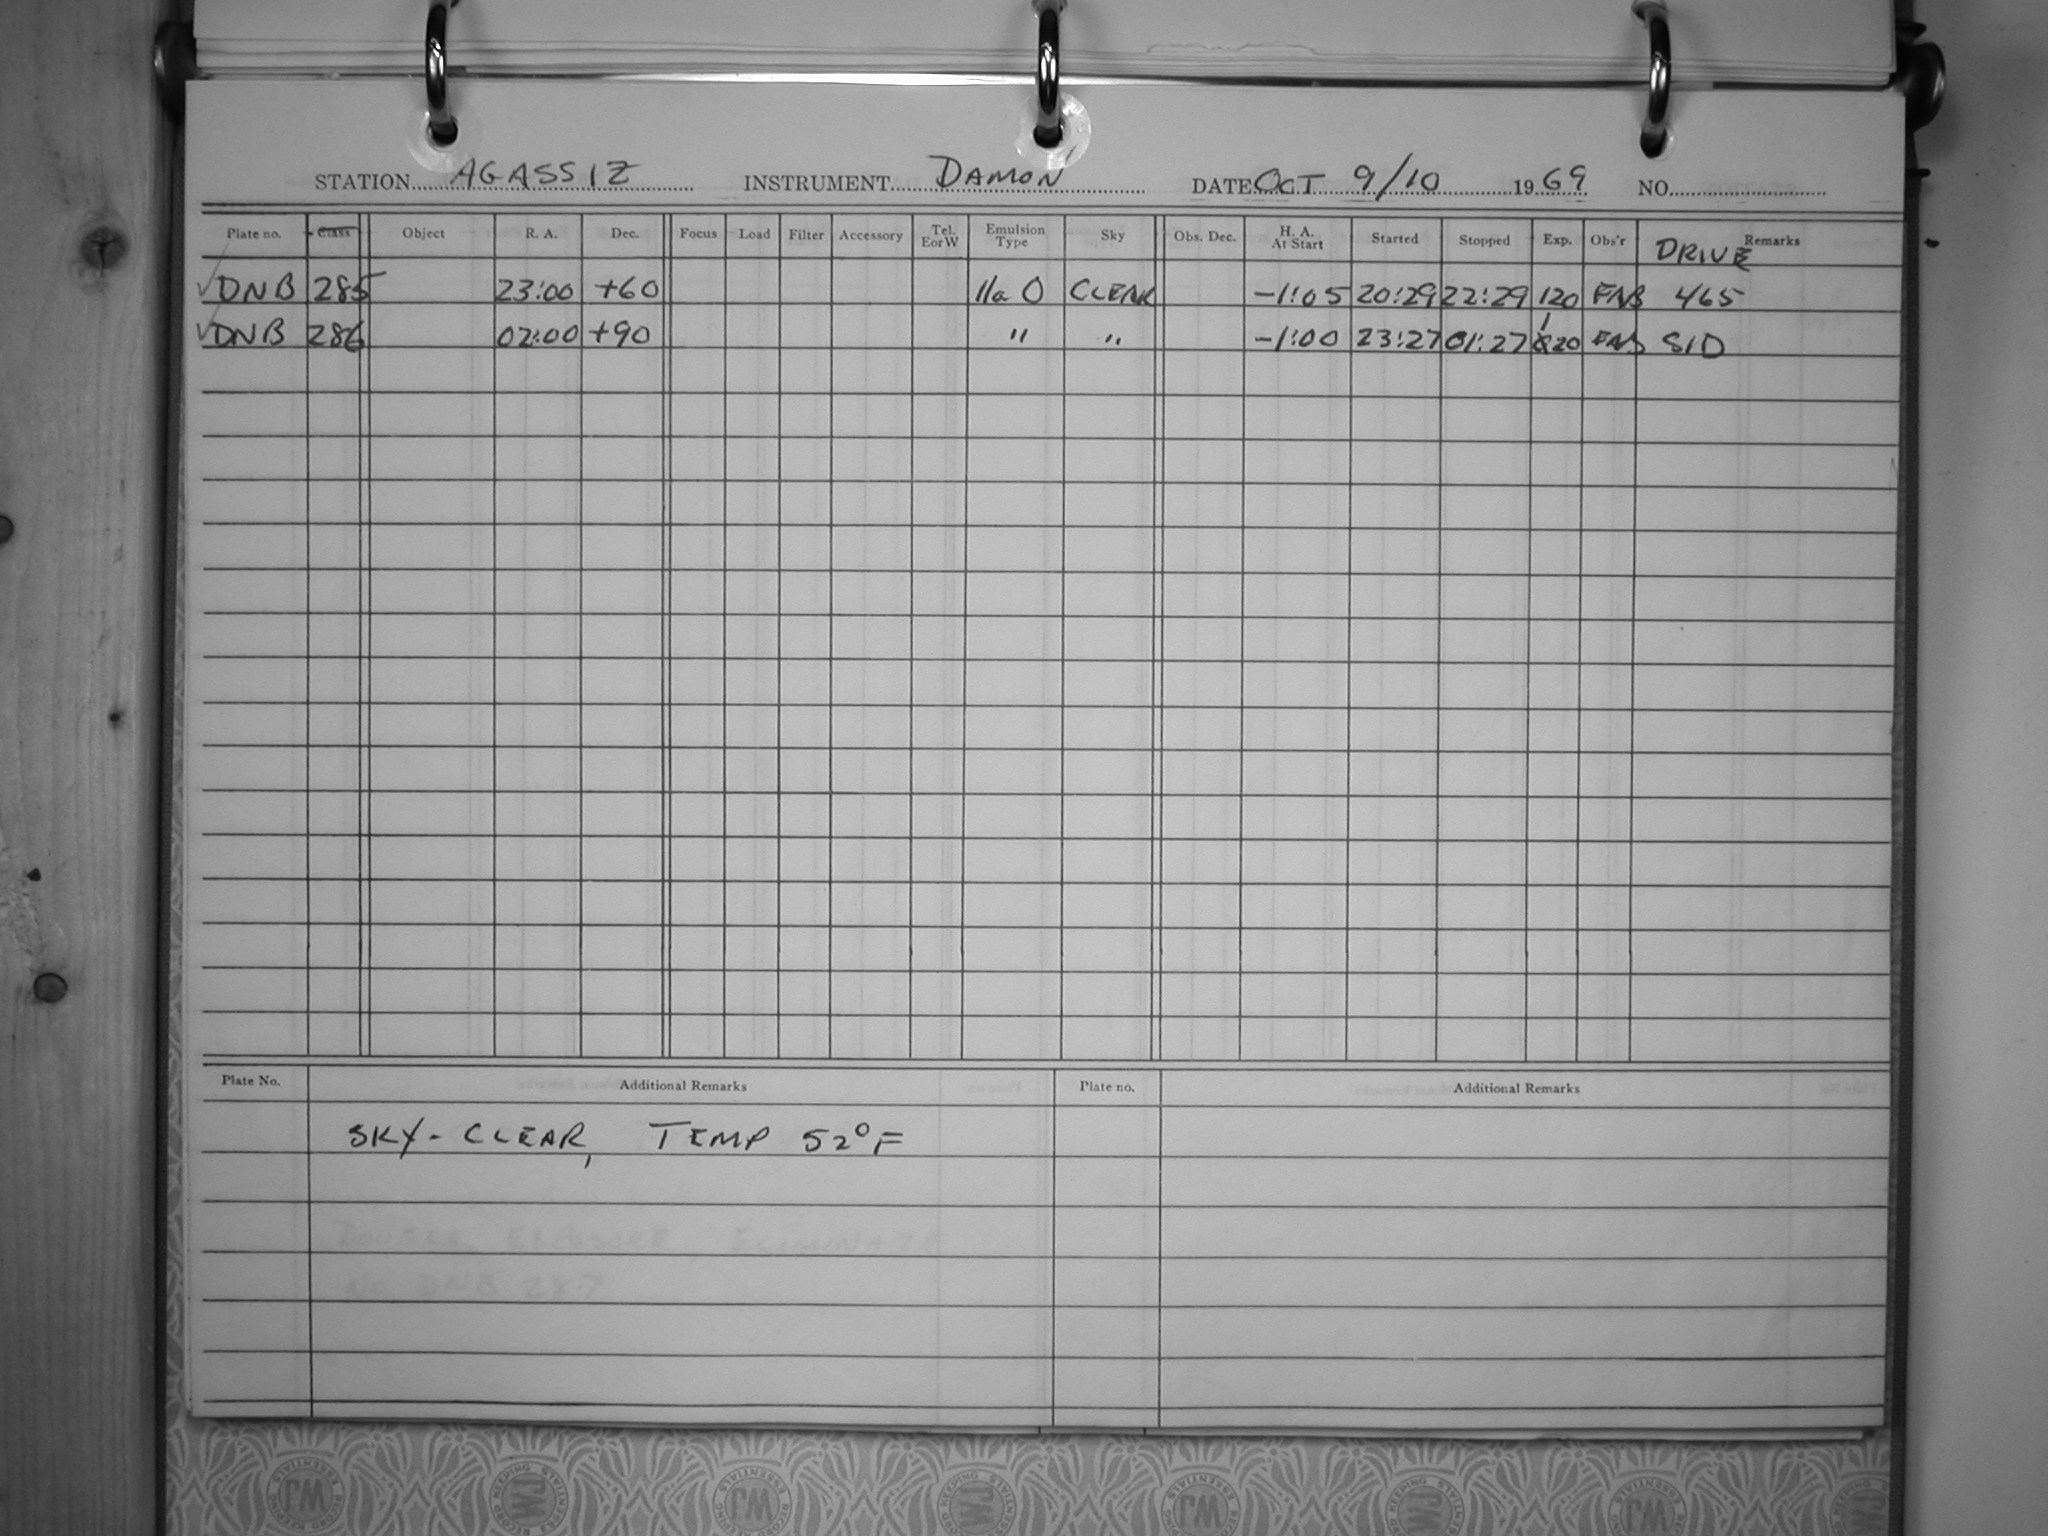 STATION AGASSIZ INSTRUMENT DAMON DATE OCT 9/10 1969 NO.
Plate no. Class Object R. A. Dec. Focus Load Filter Accessory Tel. E or W Emulsion Type Sky Obs. Dec. H. A. At Start Started Stopped Exp. Obs'r DRIVE Remarks
✓DNB 285 23:00 +60 IIa O CLEAR -1:05 20:29 22:29 120 FNB 465
✓DNB 286 02:00 +90 " " -1:00 23:27 01:27 120 FNB SID
Plate No. Additional Remarks Plate no. Additional Remarks
SKY - CLEAR, TEMP 52°F
DOUBLE EXPOSURE, ELIMINATE
NO DNB 287